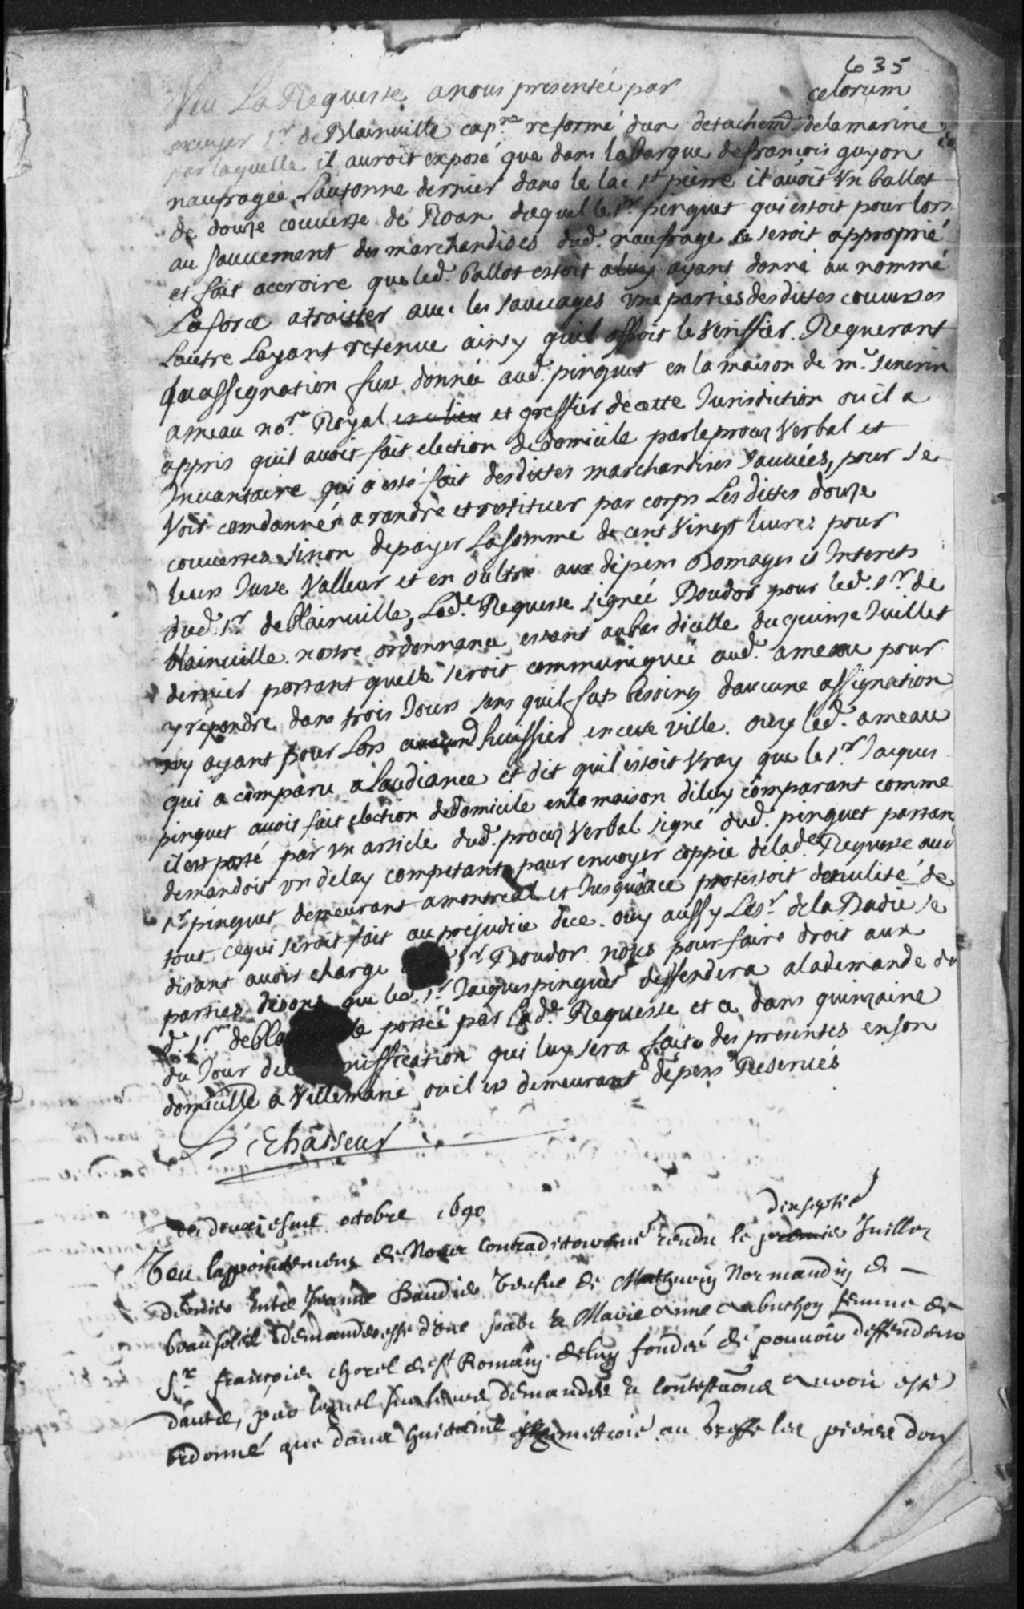 635
Veu La Requeste a nous presentée par celorum
escuyer Sr. de Blainville capne. reformé dun detachemt. de la marine
par laquelle il auroit exposé que dans la barque de françois guyon
naufragée Lautonne dernier dans le lac st pierre il avoit un ballot
de douze couverte de Roan duquel le Sr. pinguet qui estoit pour lors
au sauvement des marchandises dud. naufrage se seroit approprié
et fait accroire que led. ballot estoit a luy ayant donné au nommé
Laforce a traitter avec les sauvages une parties desdittes couvertes
Lautre Layant retenue ainsy quil offroit le veriffier. Requerant
qu assignation fust donnée aud. pinguet en la maison de mr. severin
ameau nore. Royal et greffier de cette Jurisdiction ou il a
appris quil avoit fait election de domicile par le proces verbal et
Invantaire qui a esté fait desdittes marchandises sauvées, pour se
voir comdamner a randre et restituer par corps Lesdittes douze
couvertes sinon de payer La somme de cent vingt livres pour
leur Juste valleur et en oultre aux dépens Domages et Interets
dud. Sr. de blainville, Lade. Requeste signée Boudor pour led. Sr. de
blainville. nostre ordonnance estant au bas dicelle du quinze Juillet
dernier portant quelle seroit communiquée aud. ameau pour
y repondre dans trois Jours sans quil fut besoing daucune assignation
ny ayant pour Lors aucun huissier en cette ville. ouy led. ameau
qui a comparu a Laudiance et dit quil estoit vray que le Sr. Jacques
pinguet avoit fait election de domicile en la maison de luy comparant comme
il est porté par un article dud. proces verbal signé dud. pinguet partan
demandoit un delay competant pour envoyer coppie de lade. Requeste aud
Sr. pinguet demeurant a montreal et Jusqua ce protestoit de nulité de
tout ce qui seroit fait au prejudice de ce. ouy aussy Le Sr. de la Badie se
disant avoir charge Sr. Boudor nous pour faire droit aux
parties disons que led. Sr. Jacques pinguet deffendera a la demande du
d. Sr. de portée par Lade. Requeste et a dans quinzaine
du Jour de qui luy sera faite des presentes en son
domicille a Villemarie ou il est demeurant dépens Reservés
LeChasseur
du douziesme octobre 1690
dixseptie
Veu lappointement de Nous contradictoirement rendu le Juillet
dernier entre Jeanne Baudie veufve de Mathurin Normandin de
beausoleil demanderesse d'une part & Marie anne aubuchon femme de
Sr. françois chorel de st Romain de luy fondée de pouvoir deffenderes
dautre, par lequel sur leurs demandes & contestations auroit esté
ordonné que dans huictaine mettroit au greffe les pieces don